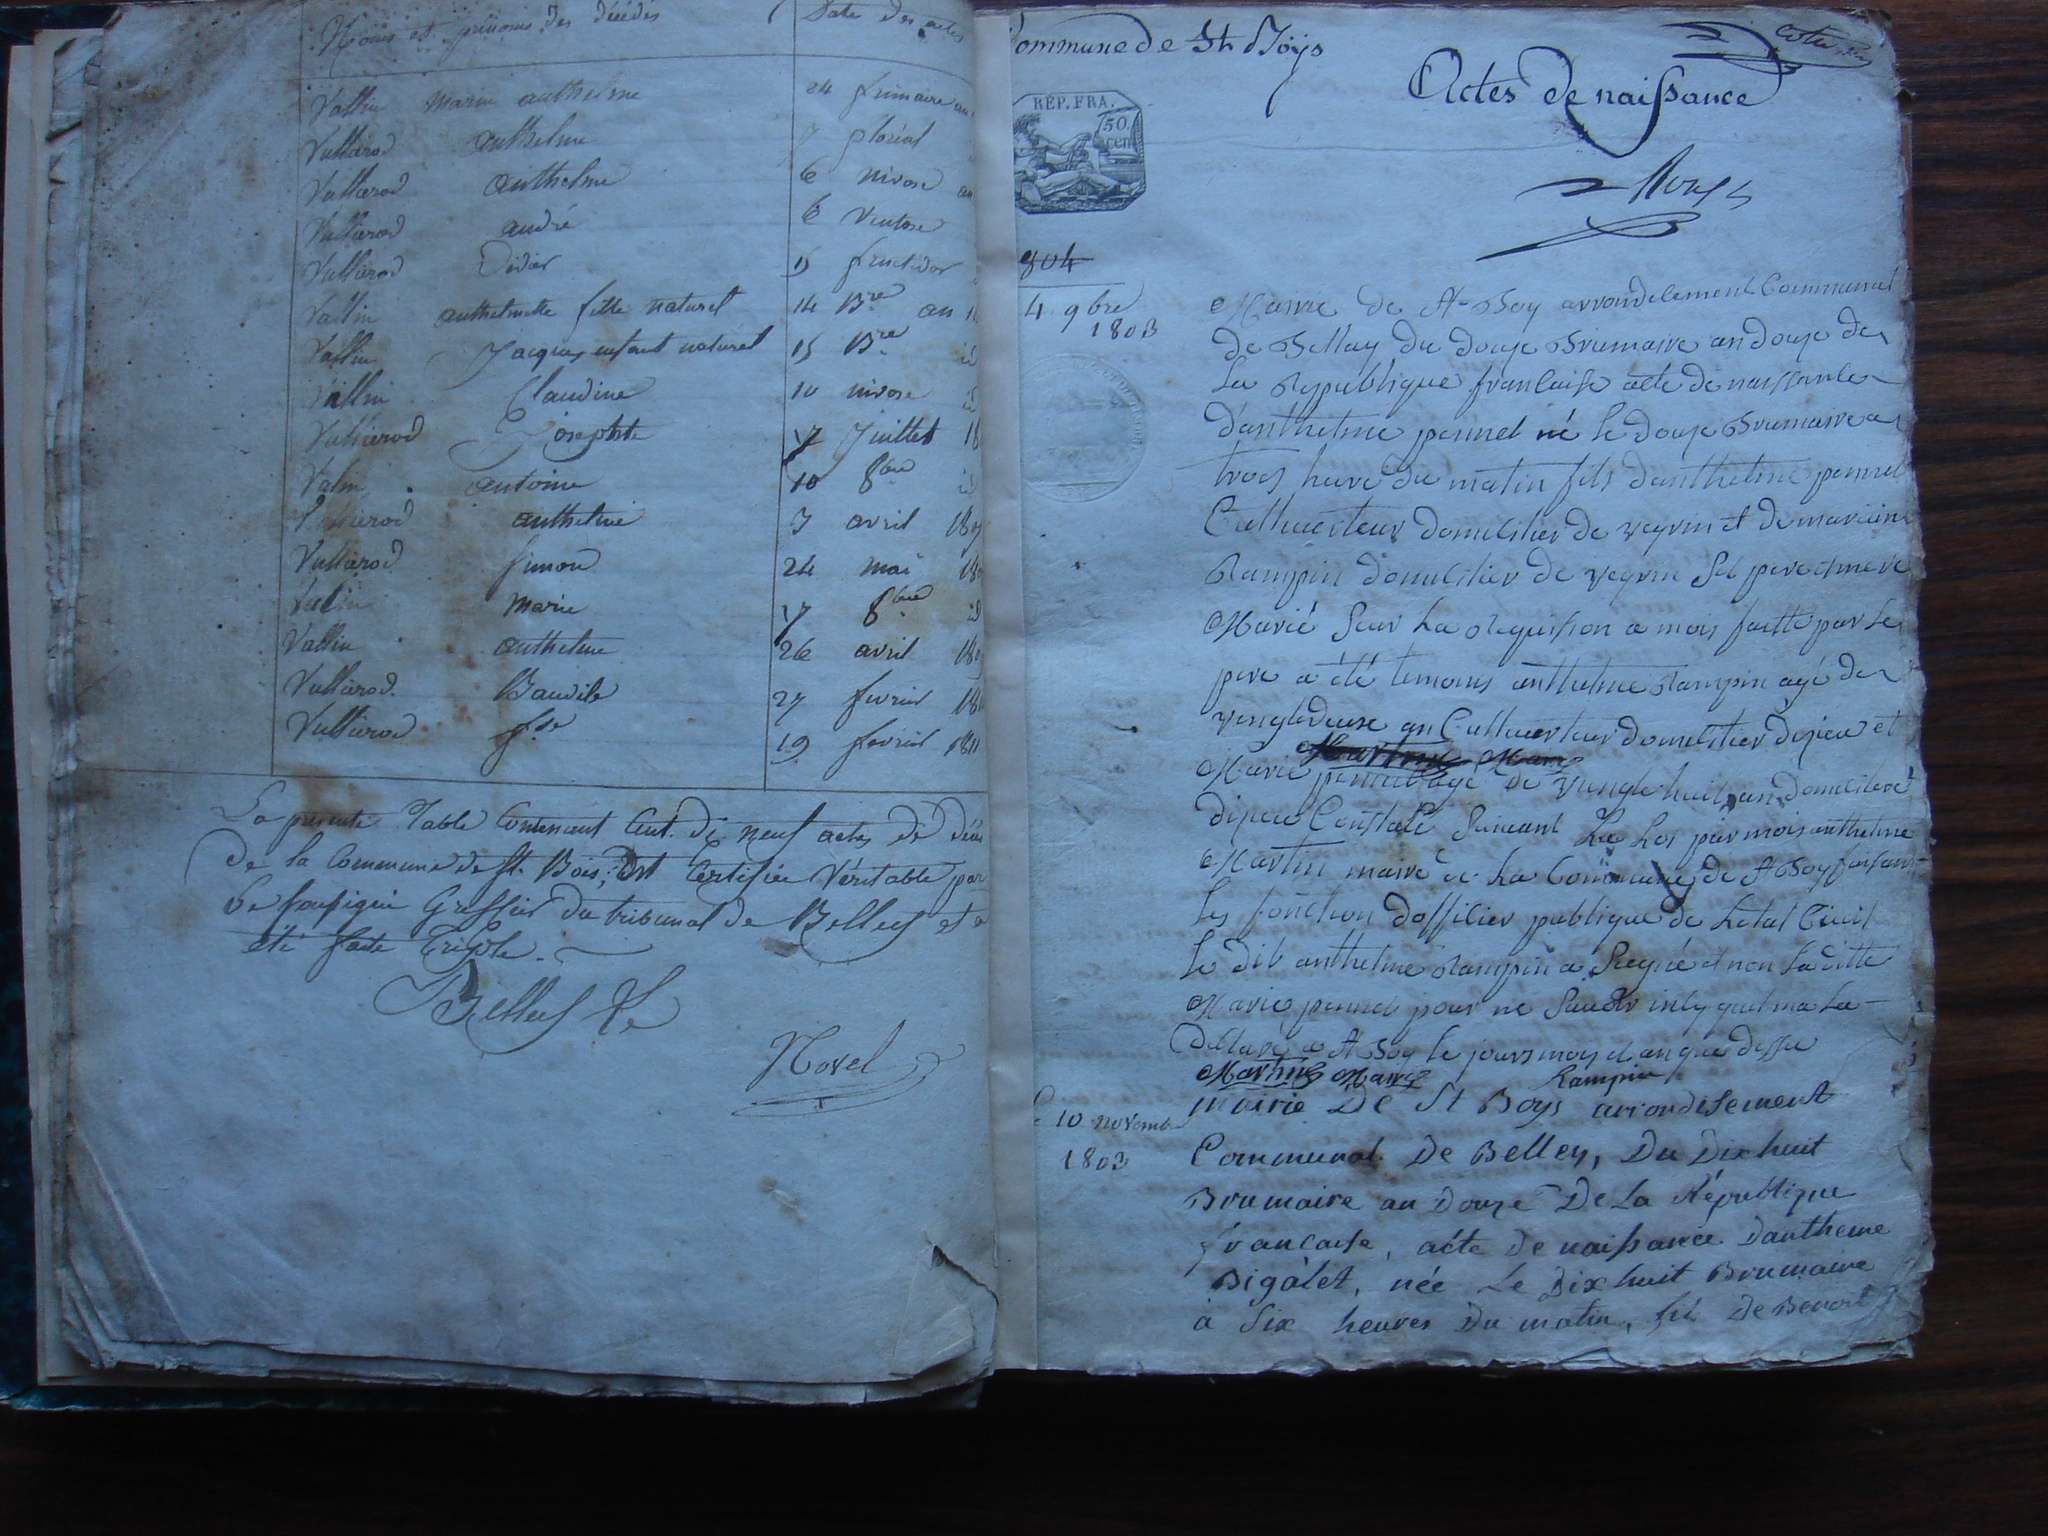 Noms et prénoms des décédés Date des actes
Vallin Marie anthelme 24 frimaire an
Vulliérod anthelme 7 floréal
Vulliérod anthelme 6 nivose an
Vulliérod andré 6 Ventose
Vulliérod Didier 15 fructidor
Vallin anthelmette fille naturel 14 Bre an
Vallin Jacques enfant naturel 15 Bre id
Vallin Claudine 10 nivose id
Vulliérod Josephte 17 Juillet 18
Valin antoine 10 8bre id
Vulliérod anthelme 7 avril 18
Vulliérod Simon 24 mai 18
Vallin Marie 17 8bre id
Vallin anthelme 26 avril 18
Vulliérod Baudile 27 fevrier 18
Vulliérod fse 19 fevrier 1811
La présente Table Contenant Cent dix neuf actes de décès
De la Commune de St. Bois, Est Certifiée Véritable par
Le soussigné Greffier du tribunal de Belley et a
été faite triple.
Belley le
Novel
Commune de St Boÿs
Actes de naissance
RÉP. FRA.
50 cen
804
4 9bre
1803
Mairie de St Boy arrondelement Communal
de Bellay du douze Brumaire an douze de
La Republique francaise acte de naissance
d'anthelme pennel né le douze Brumaire a
trois heure du matin fils d'anthelme pennel
Cultuerteur domilitier de veyrin et de
Rampin domilitier de veyrin Sel pere et mere
Marié Sur La Requision a mois faitte par Le
pere a été temoins anthelme Rampin agé de
vingtedeuxe an Cultuerteur domilitier dipieu et
Marie pennel agé de vingte huit an domilitere
dipieu Constaté Suivant La Loi par mois anthelme
Martin maire de La Commune de St Boy faisant
Les fonction dofficier publique de Letat Civil
Le dit anthelme Rampin a Siegné et non La ditte
Marie pennel pour ne Savoir
declaré a St Boy le jours mois et an que dessu
Martin Maire Rampin
10 novemb
1803
mairie De St Boys arrondisement
Communal De Belley, Du Dixhuit
Brumaire an Douze De La République
francaise, acte de naissance Dantheme
Bigalet, née Le Dixhuit Brumaire
a Six heures Du matin, fils De Benoit